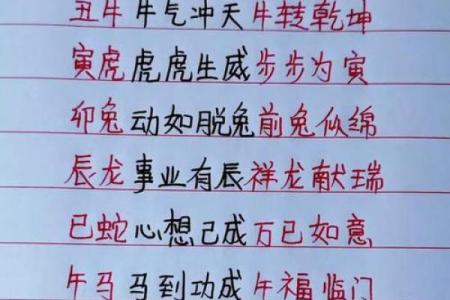 丑牛 牛气冲天 牛转乾坤
寅虎 虎虎生威 步步为寅
卯兔 动如脱兔 前兔似绵
辰龙 事业有辰 祥龙献瑞
巳蛇 心想己成 万已如意
午马 马到功成 午福临门